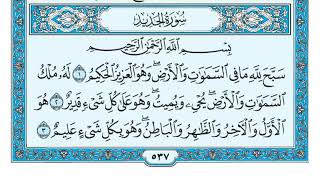 سُورَةُ الحَدِيدِ
بِسْمِ اللَّهِ الرَّحْمَٰنِ الرَّحِيمِ
سَبَّحَ لِلَّهِ مَا فِي السَّمَٰوَٰتِ وَالْأَرْضِ ۖ وَهُوَ الْعَزِيزُ الْحَكِيمُ ١ لَهُ مُلْكُ
السَّمَٰوَٰتِ وَالْأَرْضِ ۖ يُحْيِي وَيُمِيتُ ۖ وَهُوَ عَلَىٰ كُلِّ شَيْءٍ قَدِيرٌ ٢ هُوَ
الْأَوَّلُ وَالْآخِرُ وَالظَّاهِرُ وَالْبَاطِنُ ۖ وَهُوَ بِكُلِّ شَيْءٍ عَلِيمٌ ٣
٥٣٧